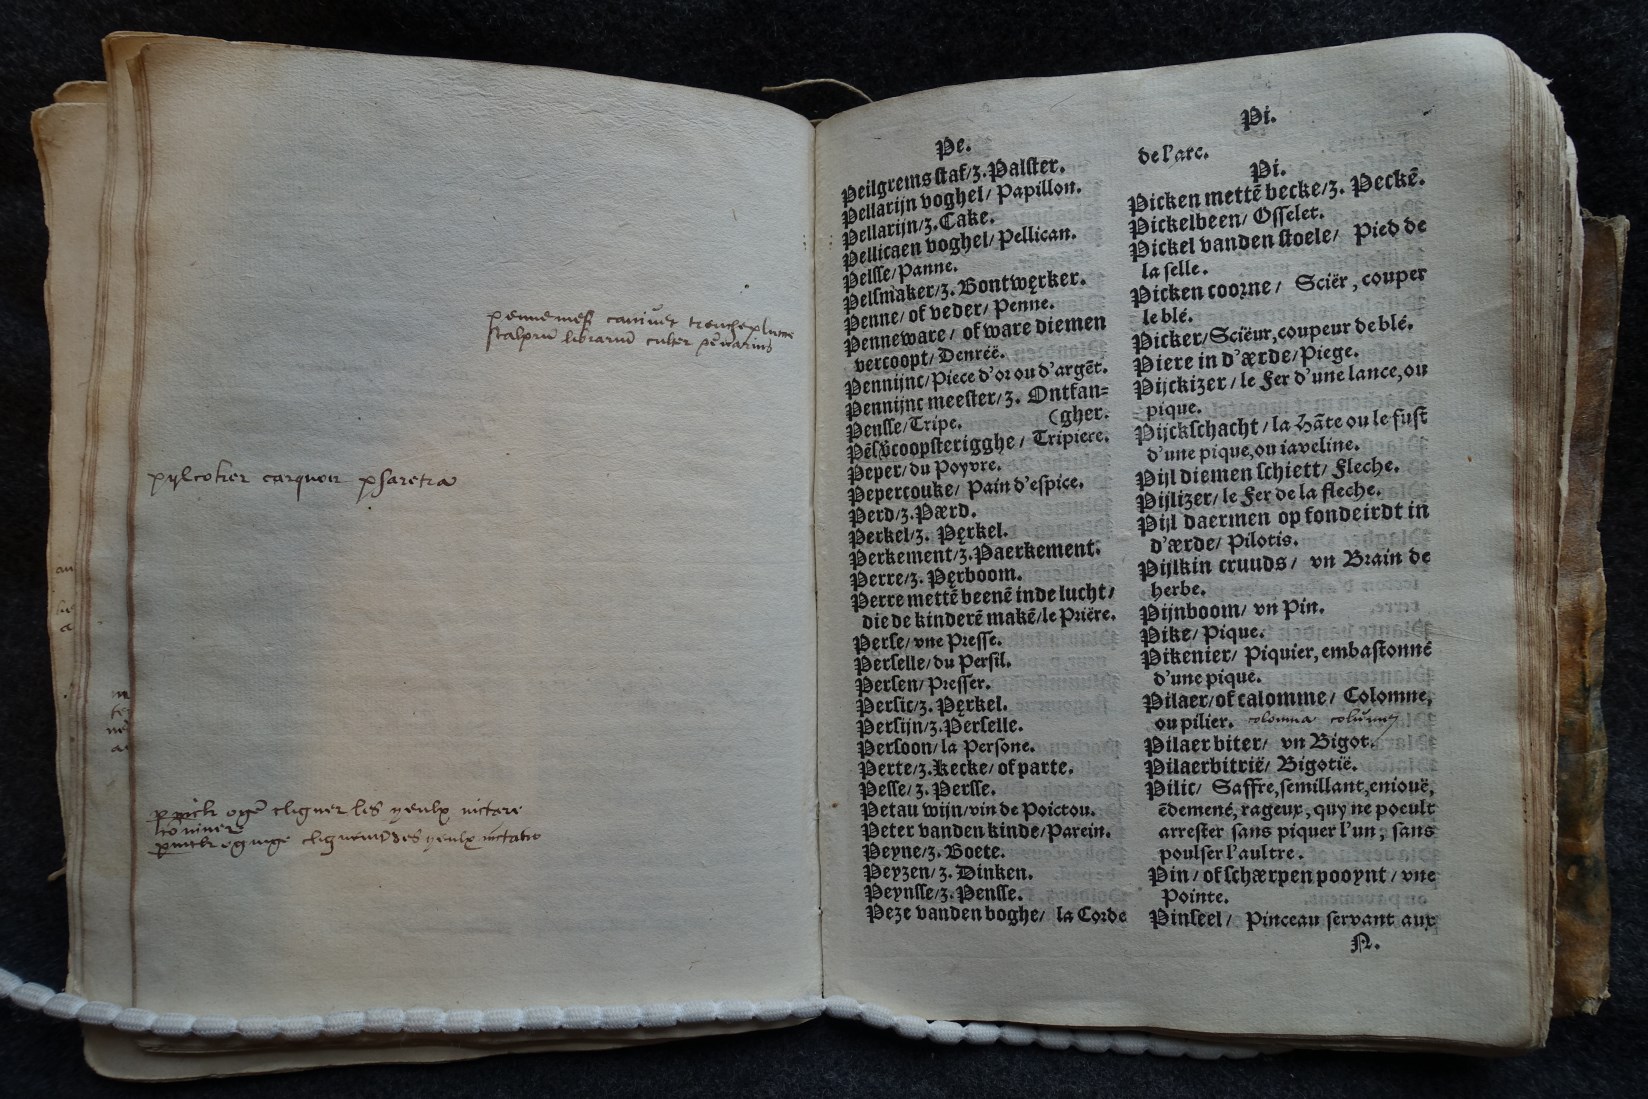 pennemess canivet trencheplume
scalprū librariū culter pēnarius
pylcoker carquois pharetra
cligner les yeulx nictare
conniver
des yeulx nictatio
Pi.
Pe.
Peilgrems staf/z. Palster.
Pellarijn voghel/ Papillon.
Pellarijn/z. Cake.
Pellicaen voghel/ Pellican.
Pelsse/Panne.
Pelsmaker/z. Bontwęrker.
Penne/ of veder/ Penne.
Penneware/ of ware diemen
vercoopt/ Denreë.
Pennijnc/Piece d'or ou d'argēt.
Pennijnc meester/z. Ontfan=
Pensse/Tripe. (gher.
Pēsv̄coopsterigghe/ Tripiere.
Peper/du Poyvre.
Pepercouke/ Pain d'espice.
Perd/z. Pærd.
Perkel/z. Pęrkel.
Perkement/z. Paerkement.
Perre/z. Pęrboom.
Perre mettē beenē inde lucht/
die de kinderē makē/le Priëre.
Perse/vne Presse.
Perselle/du Persil.
Persen/Presser.
Persic/z. Pęrkel.
Persijn/z. Perselle.
Persoon/la Persone.
Perte/z. Kecke/ of parte.
Pesse/z. Persse.
Petau wijn/vin de Poictou.
Peter vanden kinde/Parein.
Peyne/z. Boete.
Peyzen/z. Dinken.
Peynsse/z. Pensse.
Peze vanden boghe/ la Corde
de l'arc.
Pi.
Picken mettē becke/z. Peckē.
Pickelbeen/ Osselet.
Pickel vanden stoele/ Pied de
la selle.
Picken coorne/ Sciër, couper
le blé.
Picker/Sciëur, coupeur de blé.
Piere in d'ærde/Piege.
Pijckizer/ le Fer d'une lance, ou
pique.
Pijckschacht/la Hāte ou le fust
d'une pique, ou iaveline.
Pijl diemen schiett/ Fleche.
Pijlizer/ le Fer de la fleche.
Pijl daermen op fondeirdt in
d'ærde/ Pilotis.
Pijlkin cruuds/ vn Brain de
herbe.
Pijnboom/ vn Pin.
Pike/ Pique.
Pikenier/ Piquier, embastonné
d'une pique.
Pilaer/of calomme/ Colomne,
ou pilier. colonna columna
Pilaer biter/ vn Bigot.
Pilaerbitrië/ Bigotië.
Pilic/ Saffre, semillant, eniouë,
ēdemené, rageux, quy ne poeult
arrester sans piquer l'un, sans
poulser l'aultre.
Pin/ of schærpen pooynt/ vne
Pointe.
Pinseel/ Pinceau servant aux
N.